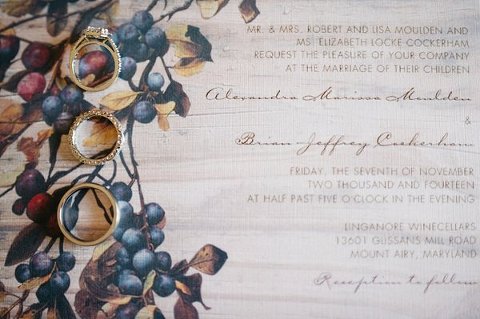 MR. & MRS. ROBERT AND LISA MOULDEN AND
MS. ELIZABETH LOCKE COCKERHAM
REQUEST THE PLEASURE OF YOUR COMPANY
AT THE MARRIAGE OF THEIR CHILDREN
Alexandra Marissa Moulden
&
Brian Jeffrey Cockerham
FRIDAY, THE SEVENTH OF NOVEMBER
TWO THOUSAND AND FOURTEEN
AT HALF PAST FIVE O'CLOCK IN THE EVENING
LINGANORE WINECELLARS
13601 GLISSANS MILL ROAD
MOUNT AIRY, MARYLAND
Reception to follow